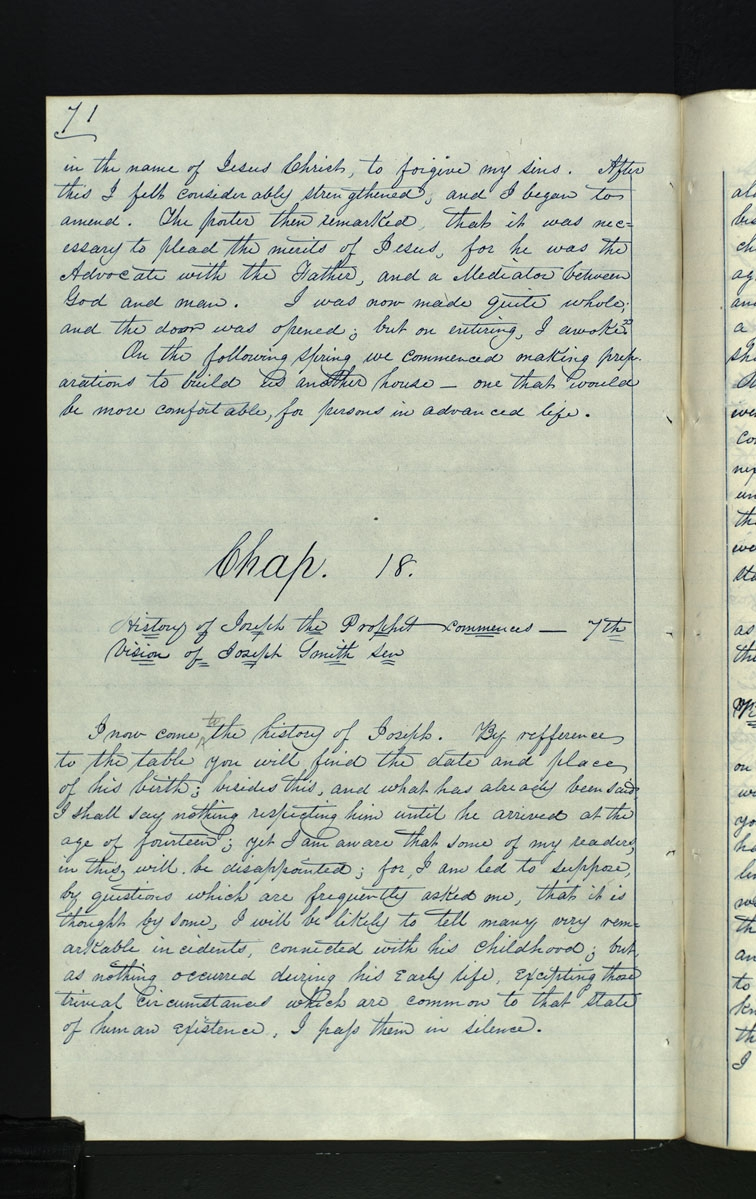 71
in the name of Jesus Christ, to forgive my sins. After
this I felt considerably strengthened, and I began to
amend. The porter then remarked, that it was nec=
essary to plead the merits of Jesus, for he was the
Advocate with the Father, and a Mediator between
God and man. I was now made quite whole;
and the door was opened; but on entering, I awoke."
On the following spring we commenced making prep-
arations to build us another house — one that would
be more comfortable, for persons in advanced life.
Chap. 18.
History of Joseph the Prophet commences — 7th
Vision of Joseph Smith Sen
I now come to the history of Joseph. By refference
to the table you will find the date and place
of his birth; besides this, and what has already been said,
I shall say nothing respecting him until he arrived at the
age of fourteen; yet I am aware that some of my readers,
in this, will be disappointed; for, I am led to suppose,
by questions which are frequently asked me, that it is
thought by some, I will be likely to tell many very rem=
arkable incidents, connected with his childhood; but,
as nothing occurred during his early life, excepting those
trivial circumstances which are common to that state
of human existence, I pass them in silence.